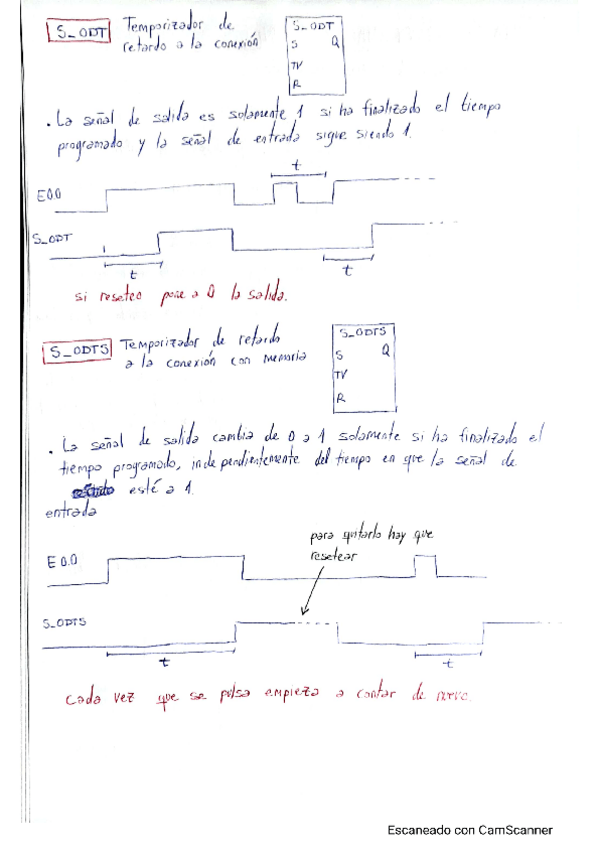 S_ODT Temporizador de
retardo a la conexión
S_ODT
S Q
TV
R
. La señal de salida es solamente 1 si ha finalizado el tiempo
programado y la señal de entrada sigue siendo 1.
t
E0.0
S_ODT
t t
si reseteo pone a 0 la salida.
S_ODTS Temporizador de retardo
a la conexión con memoria
S_ODTS
S Q
TV
R
. La señal de salida cambia de 0 a 1 solamente si ha finalizado el
tiempo programado, independientemente del tiempo en que la señal de
esté a 1.
entrada
para quitarlo hay que
resetear
E 0.0
S_ODTS
t t
Cada vez que se pulsa empieza a contar de nuevo.
Escaneado con CamScanner